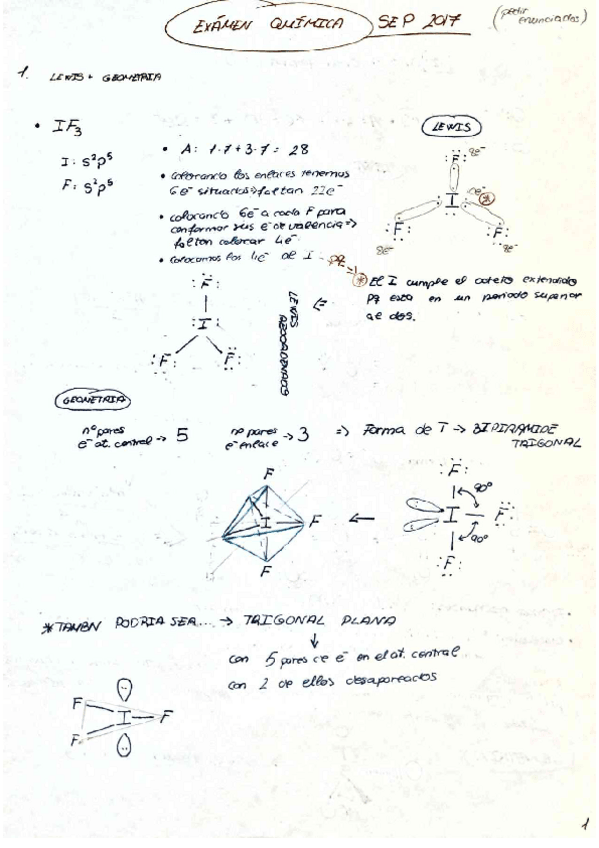 EXÁMEN QUÍMICA SEP 2017 (pedir enunciados)
1. LEWIS + GEOMETRIA
• IF3
I: s²p⁵
F: s²p⁵
• A: 1·7+3·7 = 28
• colocando los enlaces tenemos
6e⁻ situados => faltan 22e⁻
• colocando 6e⁻ a cada F para
conformar sus e⁻ de valencia =>
faltan colocar 4e⁻
• colocamos los 4e⁻ de I
LEWIS
F 8e⁻
I
F 8e⁻
F 8e⁻
* El I cumple el octeto extendido
pq esta en un periodo superior
de dos.
F
I
F F
LEWIS
GEOMETRIA
nº pares
e⁻ at. central -> 5
nº pares
e⁻ enlace -> 3
=> Forma de T -> BIPIRAMIDE
TRIGONAL
F
I F
F
F
90º
I F
90º
F
* TAMBN PODRIA SER... -> TRIGONAL PLANA
con 5 pares de e⁻ en el at. central
con 2 de ellos desapareados
F
I F
F
1